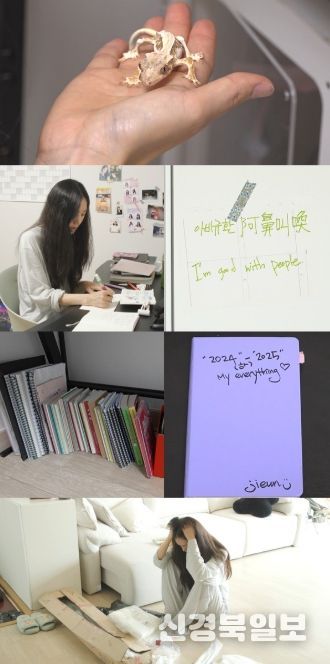 아비규환 阿鼻叫喚
I'm good with people.
"2024" → "2025"
My everything♡
jieun
신경북일보